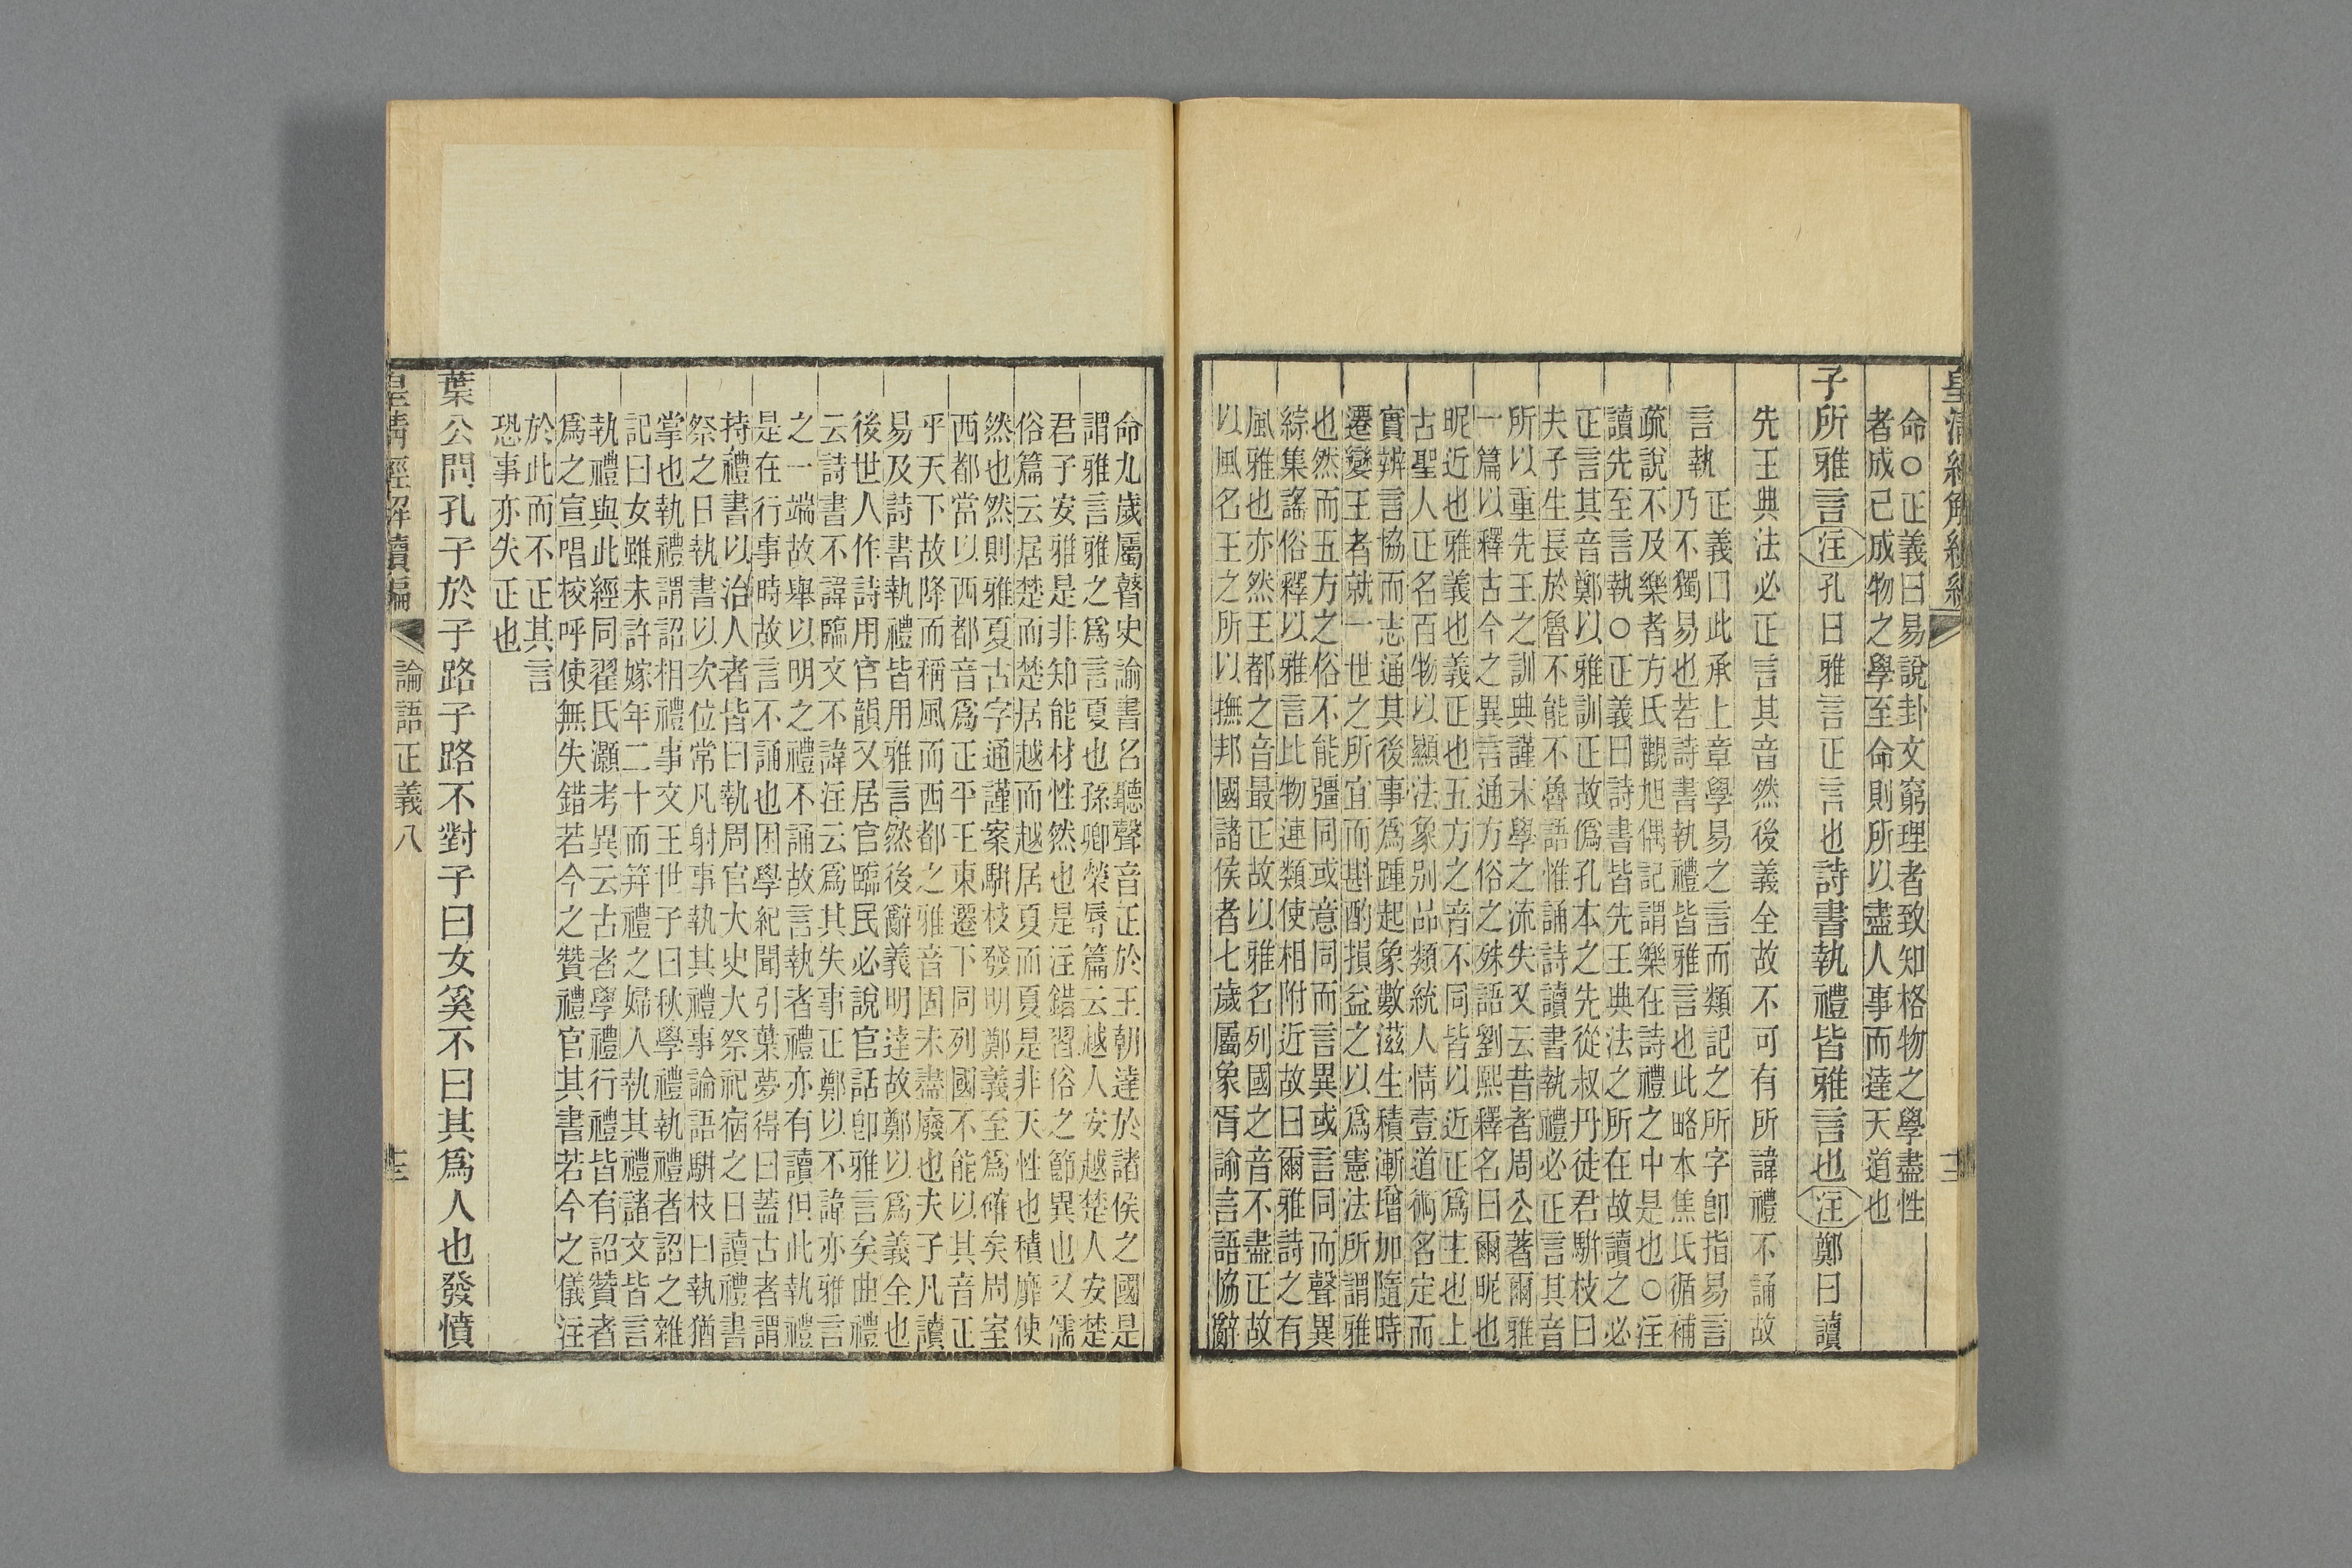 皇清經解續編
命〇正義曰易說卦文窮理者致知格物之學盡性
者成己成物之學至命則所以盡人事而達天道也
子所雅言注孔曰雅言正言也詩書執禮皆雅言也注鄭曰讀
先王典法必正言其音然後義全故不可有所諱禮不誦故
言執
正義曰此承上章學易之言而類記之所字卽指易言
乃不獨易也若詩書執禮皆雅言也此略本焦氏循補
疏說不及樂者方氏觀旭偶記謂樂在詩禮之中是也〇注
讀先至言執〇正義曰詩書皆先王典法之所在故讀之必
正言其音鄭以雅訓正故僞孔本之先從叔丹徒君駢枝曰
夫子生長於魯不能不魯語惟誦詩讀書執禮必正言其音
所以重先王之訓典謹末學之流失又云昔者周公著爾雅
一篇以釋古今之異言通方俗之殊語劉熙釋名曰爾昵也
昵近也雅義也義正也五方之音不同皆以近正爲主也上
古聖人正名百物以顯法象別品類統人情壹道術名定而
實辨言協而志通其後事爲踵起象數滋生積漸增加隨時
遷變王者就一世之所宜而斟酌損益之以爲憲法所謂雅
也然而五方之俗不能彊同或意同而言異或言同而聲異
綜集謠俗釋以雅言比物連類使相附近故曰爾雅詩之有
風雅也亦然王都之音最正故以雅名列國之音不盡正故
以風名王之所以撫邦國諸侯者七歲屬象胥諭言語協辭
命九歲屬瞽史諭書名聽聲音正於王朝達於諸侯之國是
謂雅言雅之爲言夏也孫卿榮辱篇云越人安越楚人安楚
君子安雅是非知能材性然也是注錯習俗之節異也又儒
俗篇云居楚而楚居越而越居夏而夏是非天性也積靡使
然也然則雅夏古字通謹案駢枝發明鄭義至爲確矣周室
西都當以西都音爲正平王東遷下同列國不能以其音正
乎天下故降而稱風而西都之雅音固未盡廢也夫子凡讀
易及詩書執禮皆用雅言然後辭義明達故鄭以爲義全也
後世人作詩用官韻又居官臨民必說官話卽雅言矣曲禮
云詩書不諱臨文不諱注云爲其失事正鄭以不諱亦雅言
之一端故舉以明之禮不誦故言執者禮亦有讀但此執禮
是在行事時故言不誦也困學紀聞引葉夢得曰蓋古者謂
持禮書以治人者皆曰執周官大史大祭祀宿之日讀禮書
祭之日執書以次位常凡射事執其禮事論語駢枝曰執猶
掌也執禮謂詔相禮事文王世子曰秋學禮執禮者詔之雜
記曰女雖未許嫁年二十而笄禮之婦人執其禮諸文皆言
執禮與此經同翟氏灝考異云古者學禮行禮皆有詔贊者
爲之宣唱校呼使無失錯若今之贊禮官其書若今之儀注
於此而不正其言
恐事亦失正也
葉公問孔子於子路子路不對子曰女奚不曰其爲人也發憤
皇清經解續編
論語正義八
十三